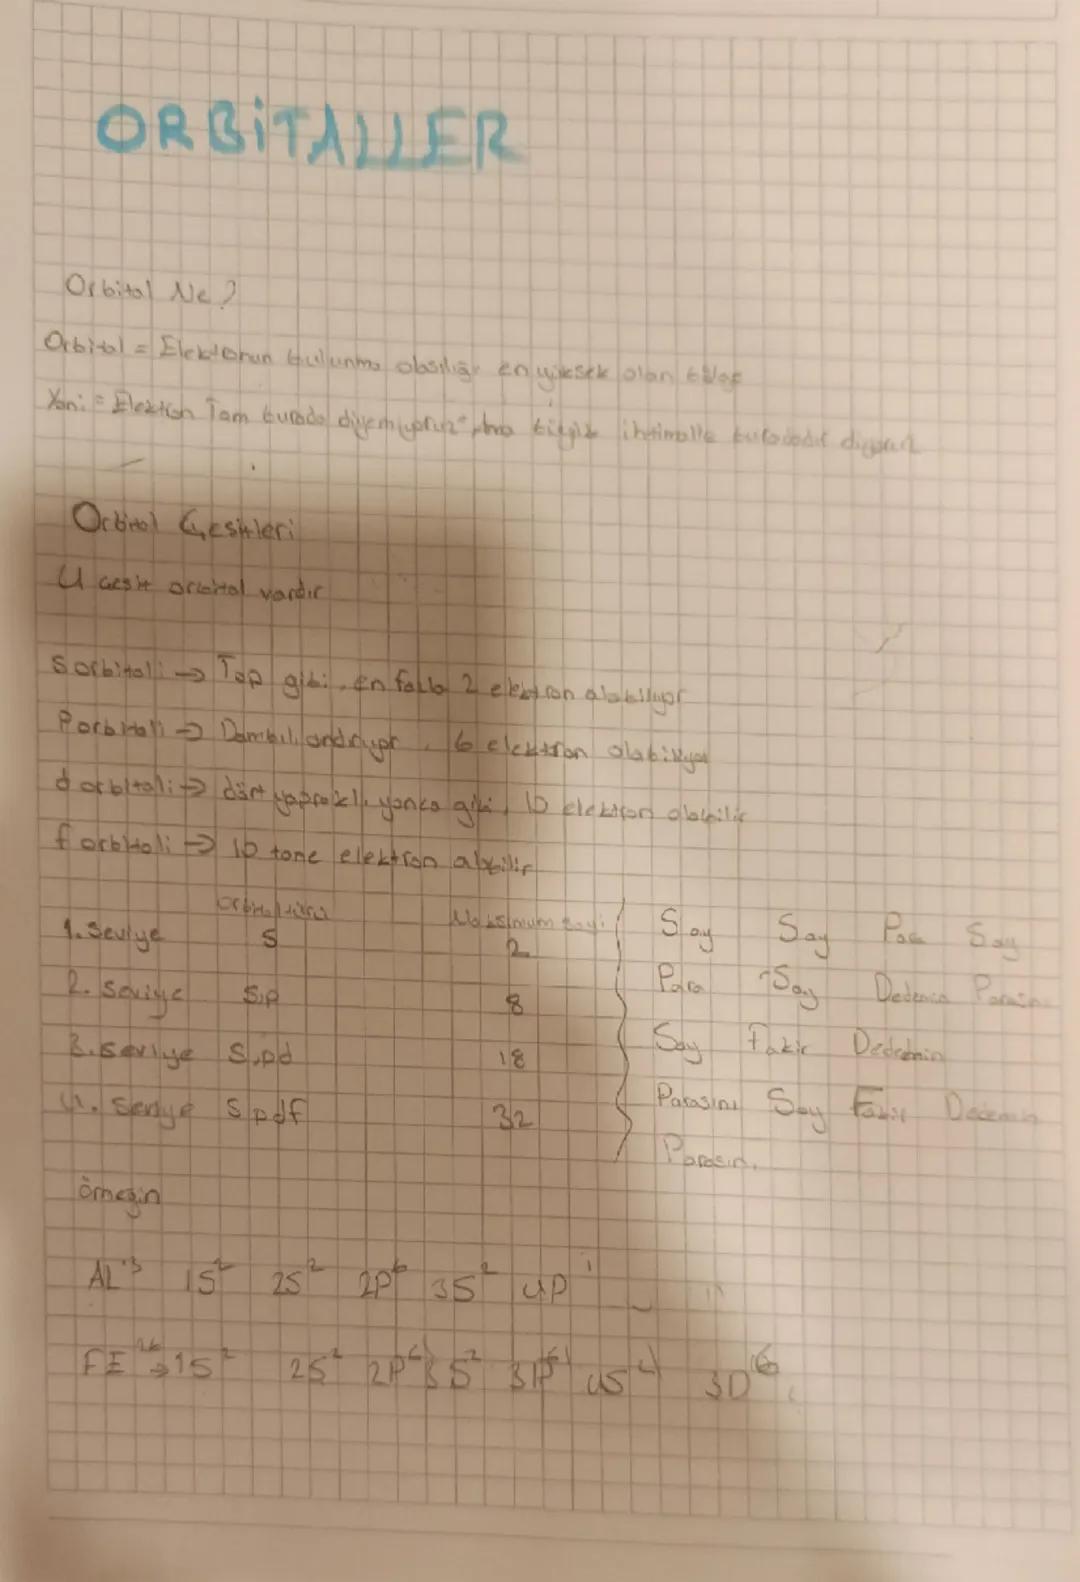 ORBİTALLER
Orbital Ne?
Orbital = Elektronun bulunma olasılığı en yüksek olan
Yani = Elektron Tam burada diyemiyoruz ama ihtimalle buradadır diyoruz
Orbital Çeşitleri
4 çeşit orbital vardır
S orbitali → Top gibi, en fazla 2 elektron alabiliyor
P orbitali → Dambılı andırıyor, 6 elektron alabiliyor
d orbitali → dört yapraklı yonca gibi, 10 elektron alabilir
f orbitali → tane elektron alabilir
Orbital türü Maksimum sayı
1. Seviye S 2
2. Seviye S,p 8
3. Seviye S,pd 18
4. Seviye S pdf 32
Say Say Para Say
Para Say Dedenin Parasını
Say Fakir Dedenin
Parasını Say Fakir Dedenin
Parasını
örneğin
AL¹³ 1S² 2S² 2P⁶ 3S² 4P¹
FE²⁶ → 1S² 2S² 2P⁶ 3S² 3P⁶ 4S 3D⁶